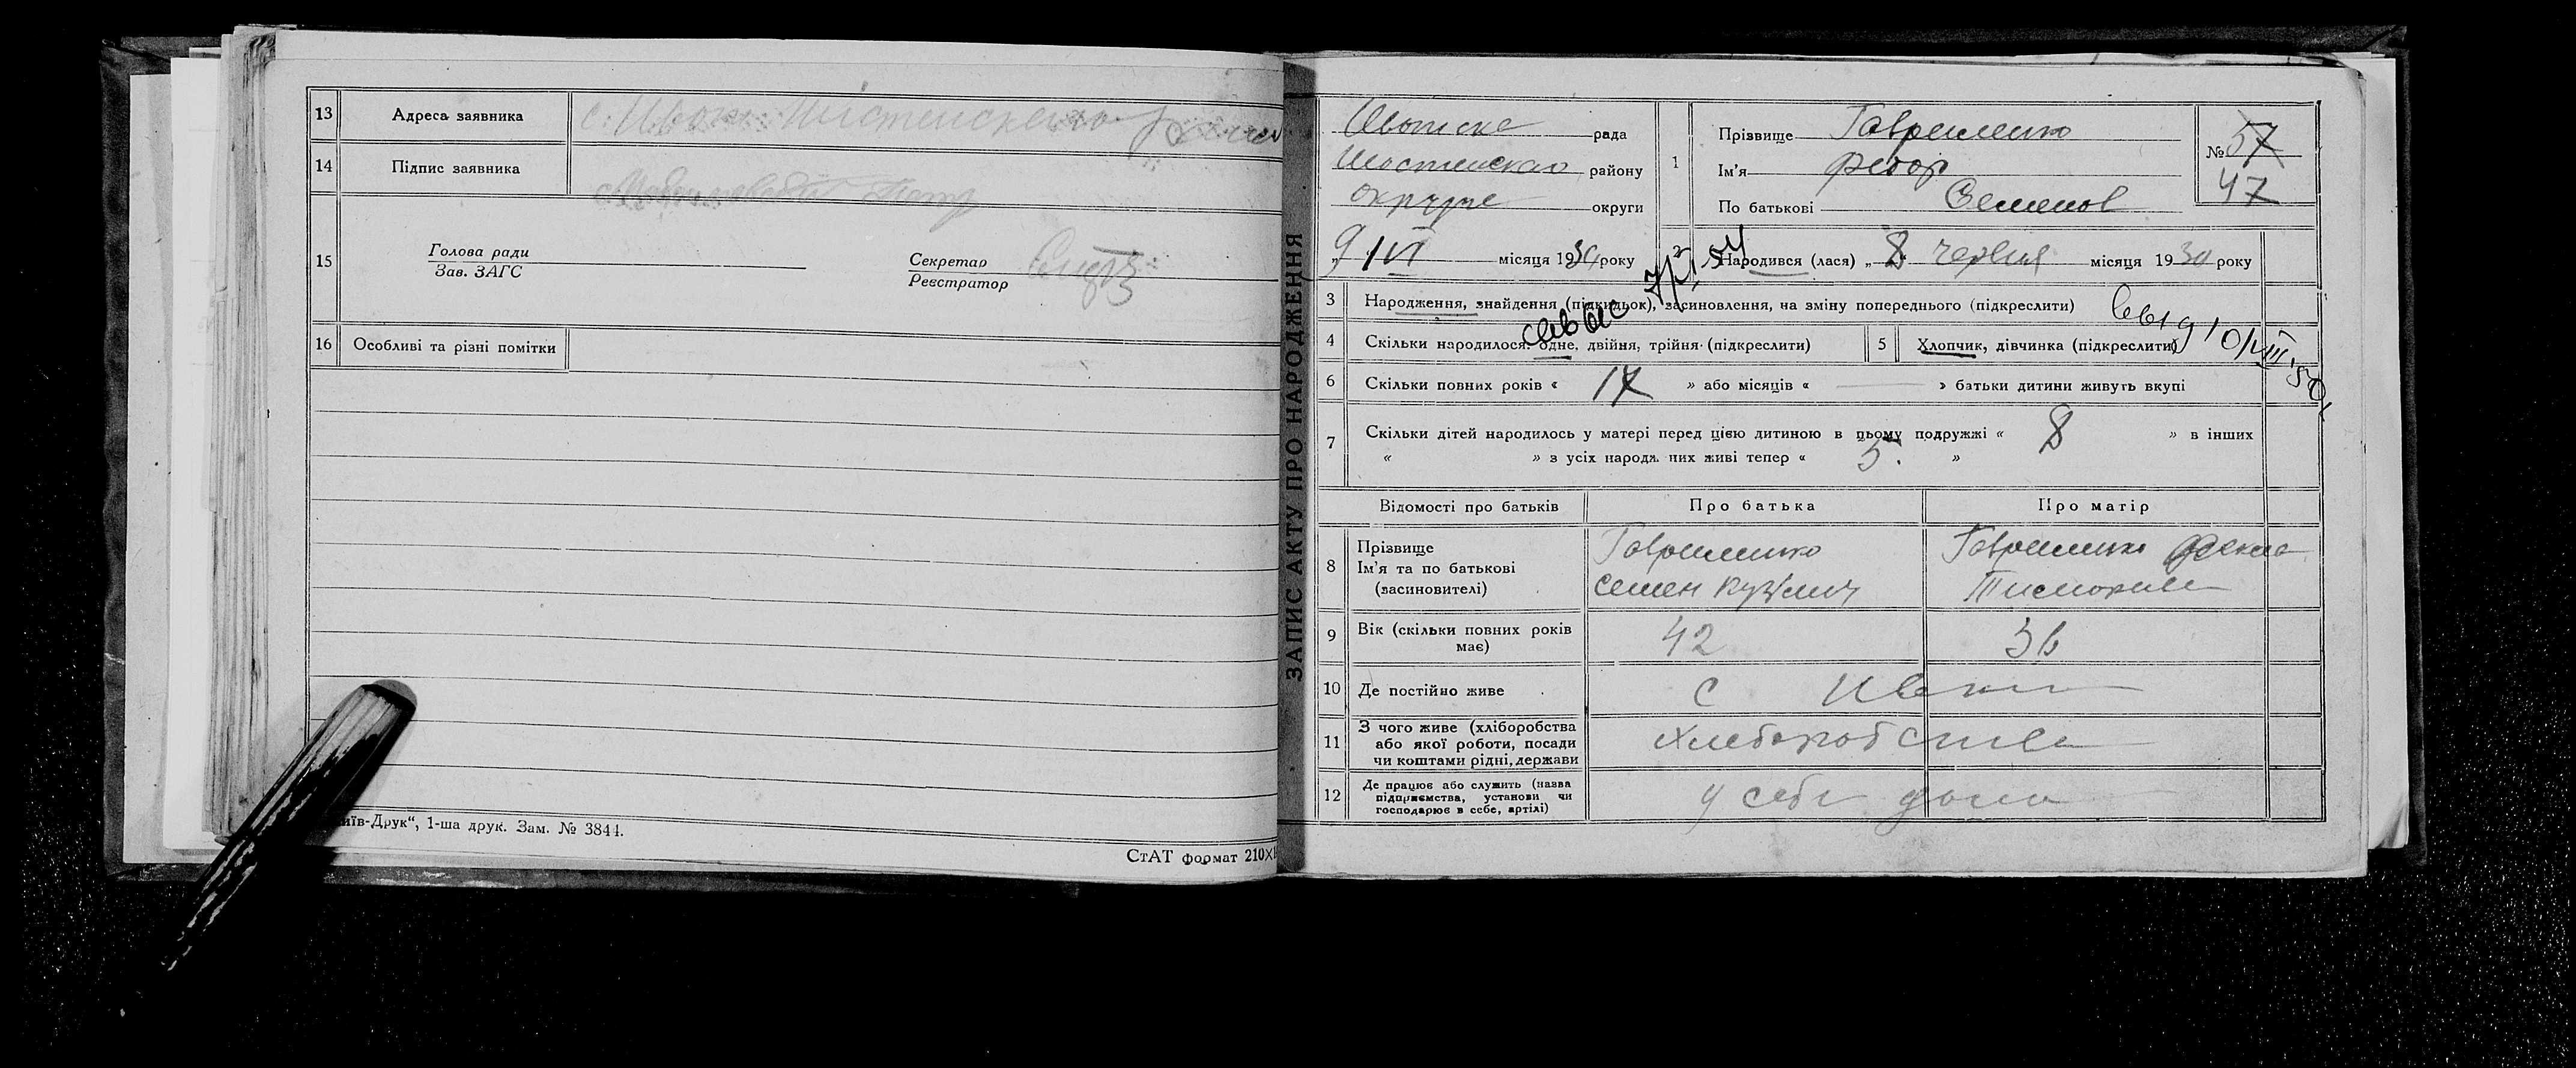 13 Адреса заявника с. Ивот
14 Підпис заявника
15 Голова ради
Зав. ЗАГС
Секретар
Реєстратор
16 Особливі та різні помітки
иїв-Друк“, 1-ша друк. Зам. № 3844.
СтАТ формат 210×
ЗАПИС АКТУ ПРО НАРОДЖЕННЯ
рада
району
округи
9/VI місяця 1930 року
1 Прізвище Гавриленко
Ім'я Федор
По батькові Семенов
№ 57
47
Народився (лася) „ 8 червня місяця 1930 року
3 Народження, знайдення (підкидьок), засиновлення, на зміну попереднього (підкреслити)
4 Скільки народилося: одне, двійня, трійня (підкреслити)
5 Хлопчик, дівчинка (підкреслити)
6 Скільки повних років « 17 » або місяців « — » батьки дитини живуть вкупі
7 Скільки дітей народилось у матері перед цією дитиною в цьому подружжі « 8 » в інших
« » з усіх народж. них живі тепер « 5. »
Відомості про батьків Про батька Про матір
8 Прізвище
Ім'я та по батькові
(засиновителі)
Гавриленко
Семен Кузьмич
Гавриленко Фекла
9 Вік (скільки повних років
має)
42 36
10 Де постійно живе с
11 З чого живе (хліборобства
або якої роботи, посади
чи коштами рідні, держави
Хлеборобства
12 Де працює або служить (назва
підприємства, установи чи
господарює в себе, артілі)
у себе дома